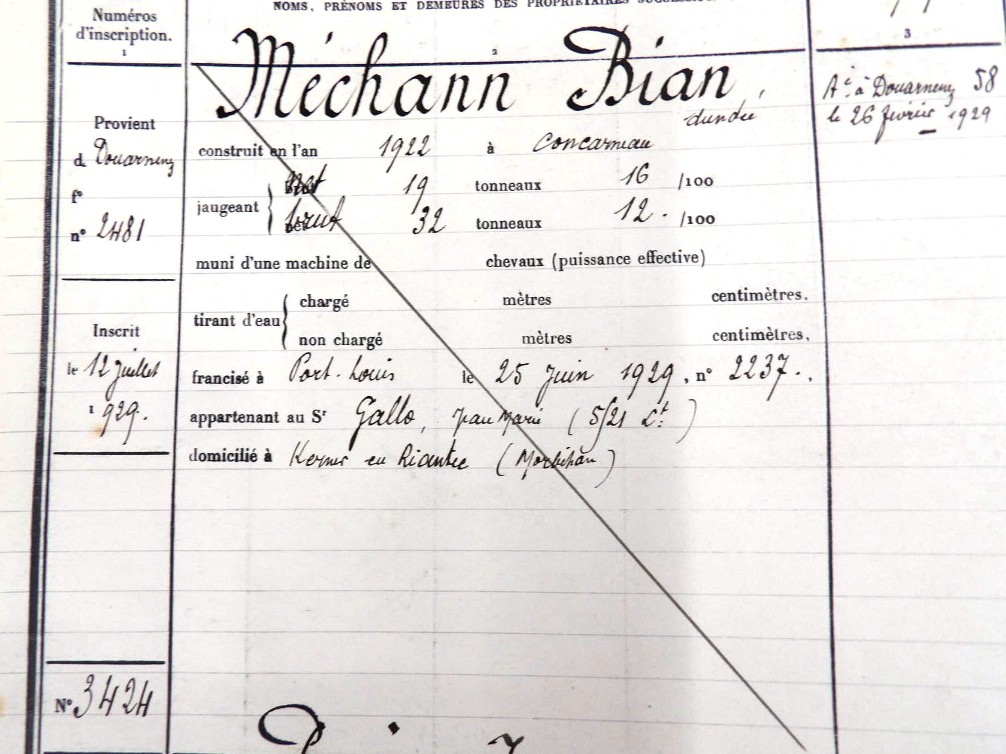 Numéros
d'inscription.
1
NOMS, PRÉNOMS ET DEMEURES DES PROPRIÉTAIRES
2
3
Méchann Bian,
dundée
Ac. à Douarnenez 58
le 26 février 1929
Provient
d Douarnenez
f°
n° 2481
construit en l'an 1922 à Concarneau
jaugeant
net 19 tonneaux 16 /100
brut 32 tonneaux 12. /100
muni d'une machine de chevaux (puissance effective)
tirant d'eau
chargé mètres centimètres.
non chargé mètres centimètres,
Inscrit
le 12 juillet
1929.
francisé à Port-Louis le 25 juin 1929, n° 2237.
appartenant au Sr Gallo, Jean Marie (5/21 Lt)
domicilié à en Riantec (Morbihan)
N° 3424